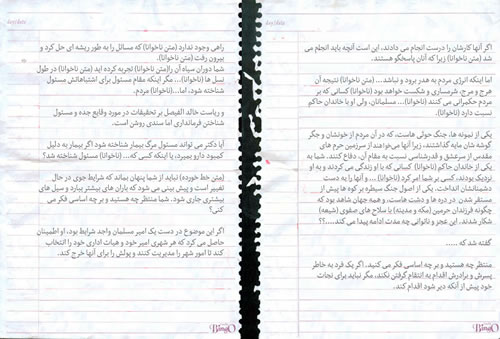 day/date
اگر آنها کارشان را درست انجام می دادند، این است آنچه باید انجام می
شد (متن ناخوانا) زیرا که آنان پاسخگو هستند.
اما اینکه انرژی مردم به هدر برود و نباشد... (متن ناخوانا) نتیجه آن
هرج و مرج، شرمساری و شکست خواهد بود (ناخوانا) کسانی که بر
مردم حکمرانی می کنند (ناخوانا)... مسلمانان، ولی او با خاندان حاکم
نسبت دارد (ناخوانا).
یکی از نمونه ها، جنگ حوثی هاست، که در آن مردم از خونشان و جگر
گوشه شان مایه گذاشتند، زیرا آنها می‌خواهند از سرزمین حرم های
مقدس از سرعشق و قدرشناسی نسبت به مقام آن، دفاع کنند. شما به
یکی از خاندان حاکم (ناخوانا) کسانی که با او زندگی می کردند و به او
نزدیک بودند، کسی بر شما امر کرد (ناخوانا) ... و آنها را به دست
دشمنانشان انداخت. یکی از اصول جنگ سیطره بر کوه ها پیش از
مستقر شدن در دره ها و دشت هاست، و همه جهان شاهد بود که
چگونه فرزندان حرمین (مکه و مدینه) با سلاح های صفوی (شیعه)
شکار شدند. این عجز و ناتوانی چه مدت ادامه پیدا می کند....؟؟
گفته شد که .....
منتظر چه هستید و بر چه اساسی فکر می کنید. اگر یک فرد به خاطر
پسرش و برادرش اقدام به انتقام گرفتن نکند، مگر نباید برای نجات
خود پیش از آنکه دیر شود اقدام کند.
BingO
day/date
راهی وجود ندارد (متن ناخوانا) که مسائل را به طور ریشه ای حل کرد و
بیرون رفت (متن ناخوانا).
شما دوران سیاه آن را(متن ناخوانا) تجربه کرده اید (متن ناخوانا) در طول
نسل ها (ناخوانا)... مگر اینکه مقام مسئول برای اشتباهاتش مسئول
شناخته شود، اما...(ناخوانا) مردم.
و ریاست خالد الفیصل بر تحقیقات در مورد وقایع جده و مسئول
شناختن فرمانداری اما سندی روشن است.
آیا دکتر می تواند مسئول مرگ بیمار شناخته شود اگر بیمار به دلیل
کمبود دارو بمیرد، یا اینکه کسی که... (ناخوانا) مسئول شناخته شد؟
(متن خط خورده) نباید از شما پنهان بماند که شرایط جوی در حال
تغییر است و پیش بینی می شود که باران های بیشتر ببارد و سیل های
بیشتری جاری شود. شما منتظر چه هستید و بر چه اساسی فکر می
کنی؟
اگر این موضوع در دست یک امیر مسلمان واجد شرایط بود، او اطمینان
حاصل می کرد که هر شهری امیر خود و هیات اداری خود را انتخاب
کند تا امور شهر را مدیریت کنند و پولش را برای آنها خرج کند.
BingO